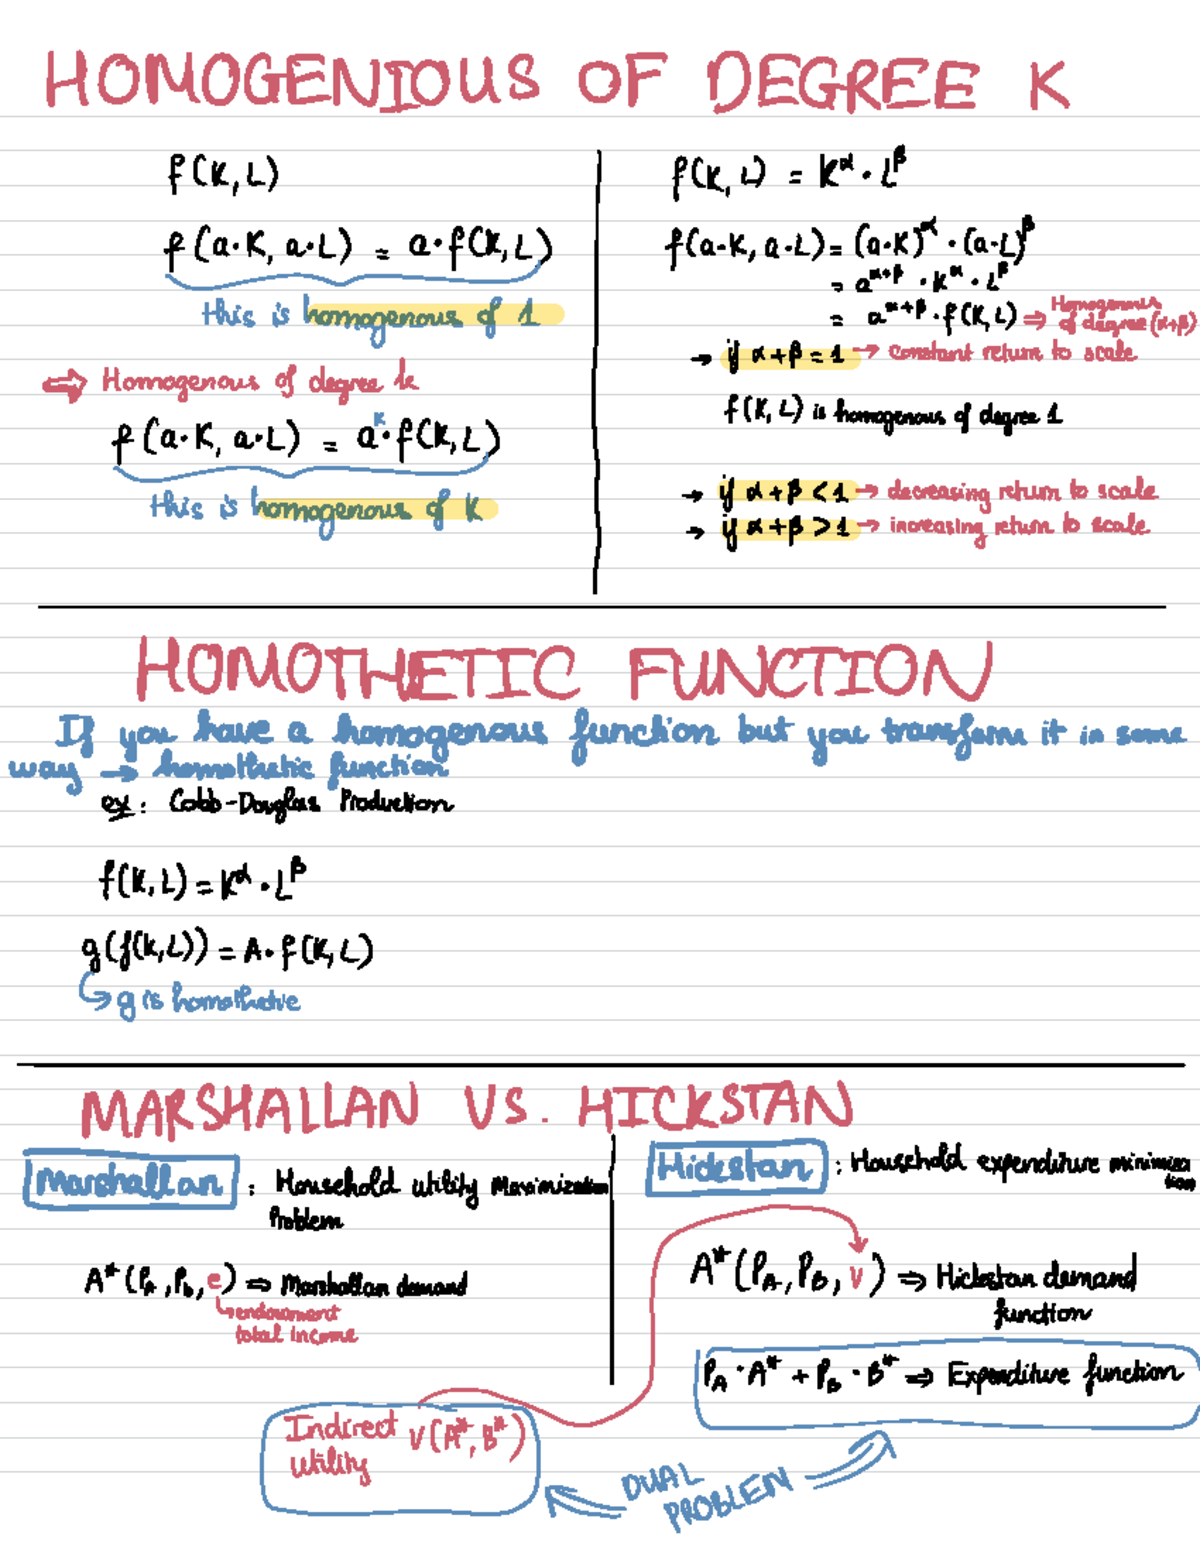 HOMOGENIOUS OF DEGREE K
f(K, L)
f(a·K, a·L) = a·f(K, L)
this is homogenous of 1
⇒ Homogenous of degree k
f(a·K, a·L) = a^K·f(K, L)
this is homogenous of K
f(K, L) = K^α · L^β
f(a·K, a·L) = (a·K)^α · (a·L)^β
= a^(α+β) · K^α · L^β
= a^(α+β) · f(K, L) ⇒ Homogenous
of degree (α+β)
→ if α+β = 1 → constant return to scale
f(K, L) is homogenous of degree 1
→ if α+β < 1 → decreasing return to scale
→ if α+β > 1 → increasing return to scale
HOMOTHETIC FUNCTION
If you have a homogenous function but you transform it in some
way → homothetic function
ex: Cobb-Douglas Production
f(K, L) = K^α · L^β
g(f(K, L)) = A · f(K, L)
↳ g is homothetic
MARSHALLAN VS. HICKSTAN
Marshallan : Household utility Maximization
Problem
A*(P_A, P_b, e) ⇒ Marshallan demand
↳ endowment
total income
Indirect V(A*, B*)
utility
Hickstan : Household expenditure minimiza
tion
A*(P_A, P_B, V) ⇒ Hickstan demand
function
P_A · A* + P_B · B* ⇒ Expenditure function
DUAL
PROBLEM